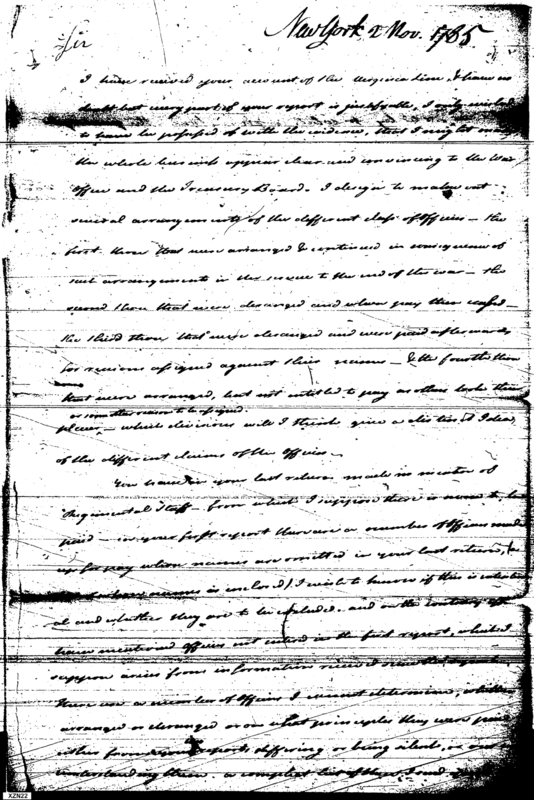 New York 2 Nov. 1785.
Sir
I have received your account of the Virginia line, & have no
doubt but every part of your report is justifyable, I only wished
to have be possessed of with the evidence, that I might make
the whole business appear clear and convincing to the War
Office and the Treasury Board. I design to make out
several arrangements of the different class of Officers — the
first those that were arranged & continued in consequence of
such arrangements in the service to the end of the war — the
second those that were deranged and when pay then ceased —
the third those that were deranged and were paid afterwards
for reasons assigned against their names — & the fourth those
that were arranged, but not entitled to pay as others took their
or some other reason to be assigned
places, — which divisions will I think give a distinct Idea
of the different claims of the Officers —
You have in your last return made no mention of
Regimental Staff — from which I suppose there is none to be
paid — in your first report there are a number of Officers made
up for pay whose names are omitted in your last return, (a
of whose names is enclosed) I wish to know if this is intention
al and whether they are to be excluded. and on the contrary
have mentioned officers not entered in the first report, which I
suppose arises from information received since that
there are a number of Officers I cannot determine, whether
arranged or deranged or on what principles they were paid
either from your reports differing or being silent, or our not
understanding them. a compleat list of these I send
XZN22